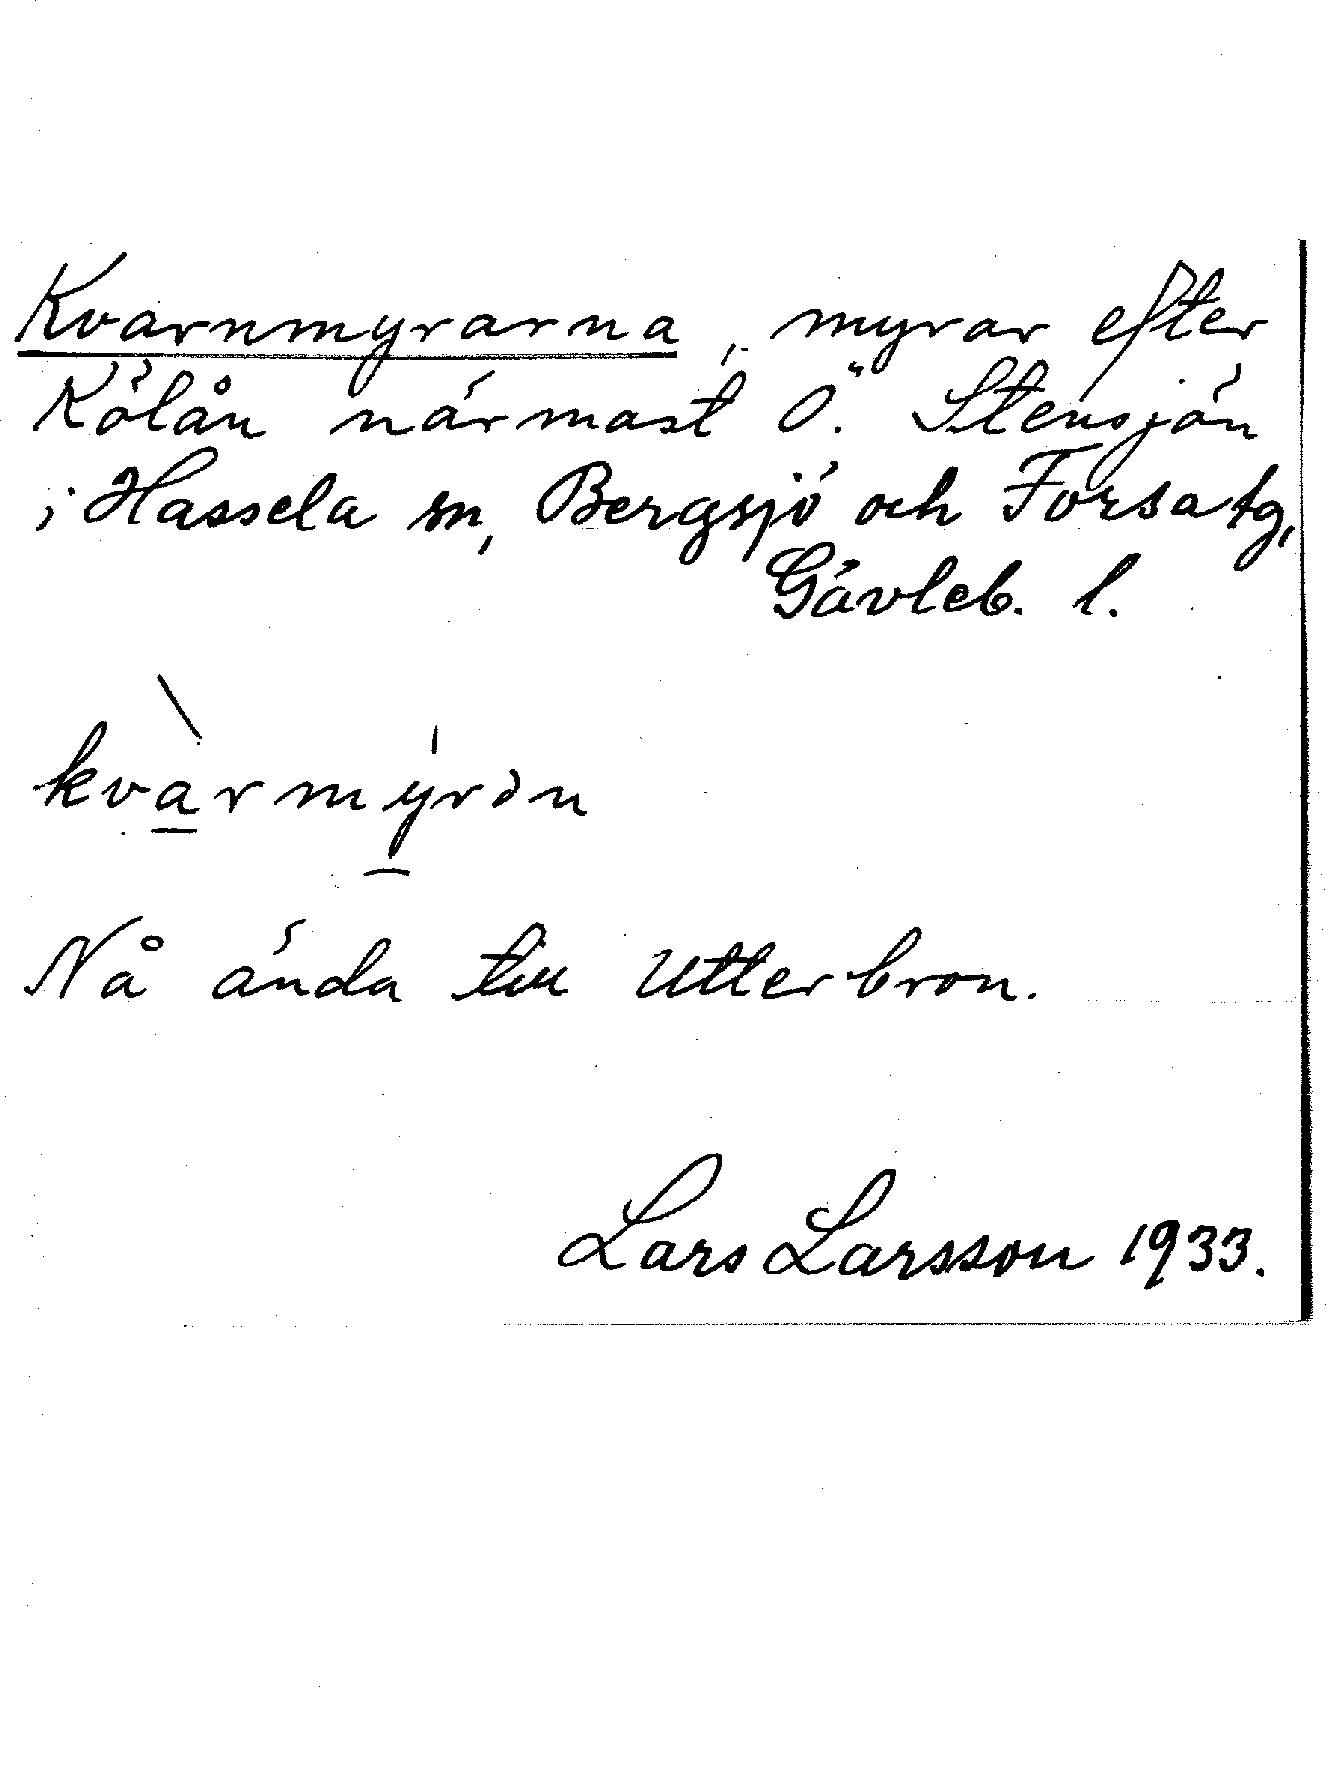 Kvarnmyrarna, myrar efter
Kölån närmast Ö. Stensjön
i Hassela sn, Bergsjö och Forsa tg,
Gävleb. l.
Nå ända till Utterbron.
Lars Larsson 1933.